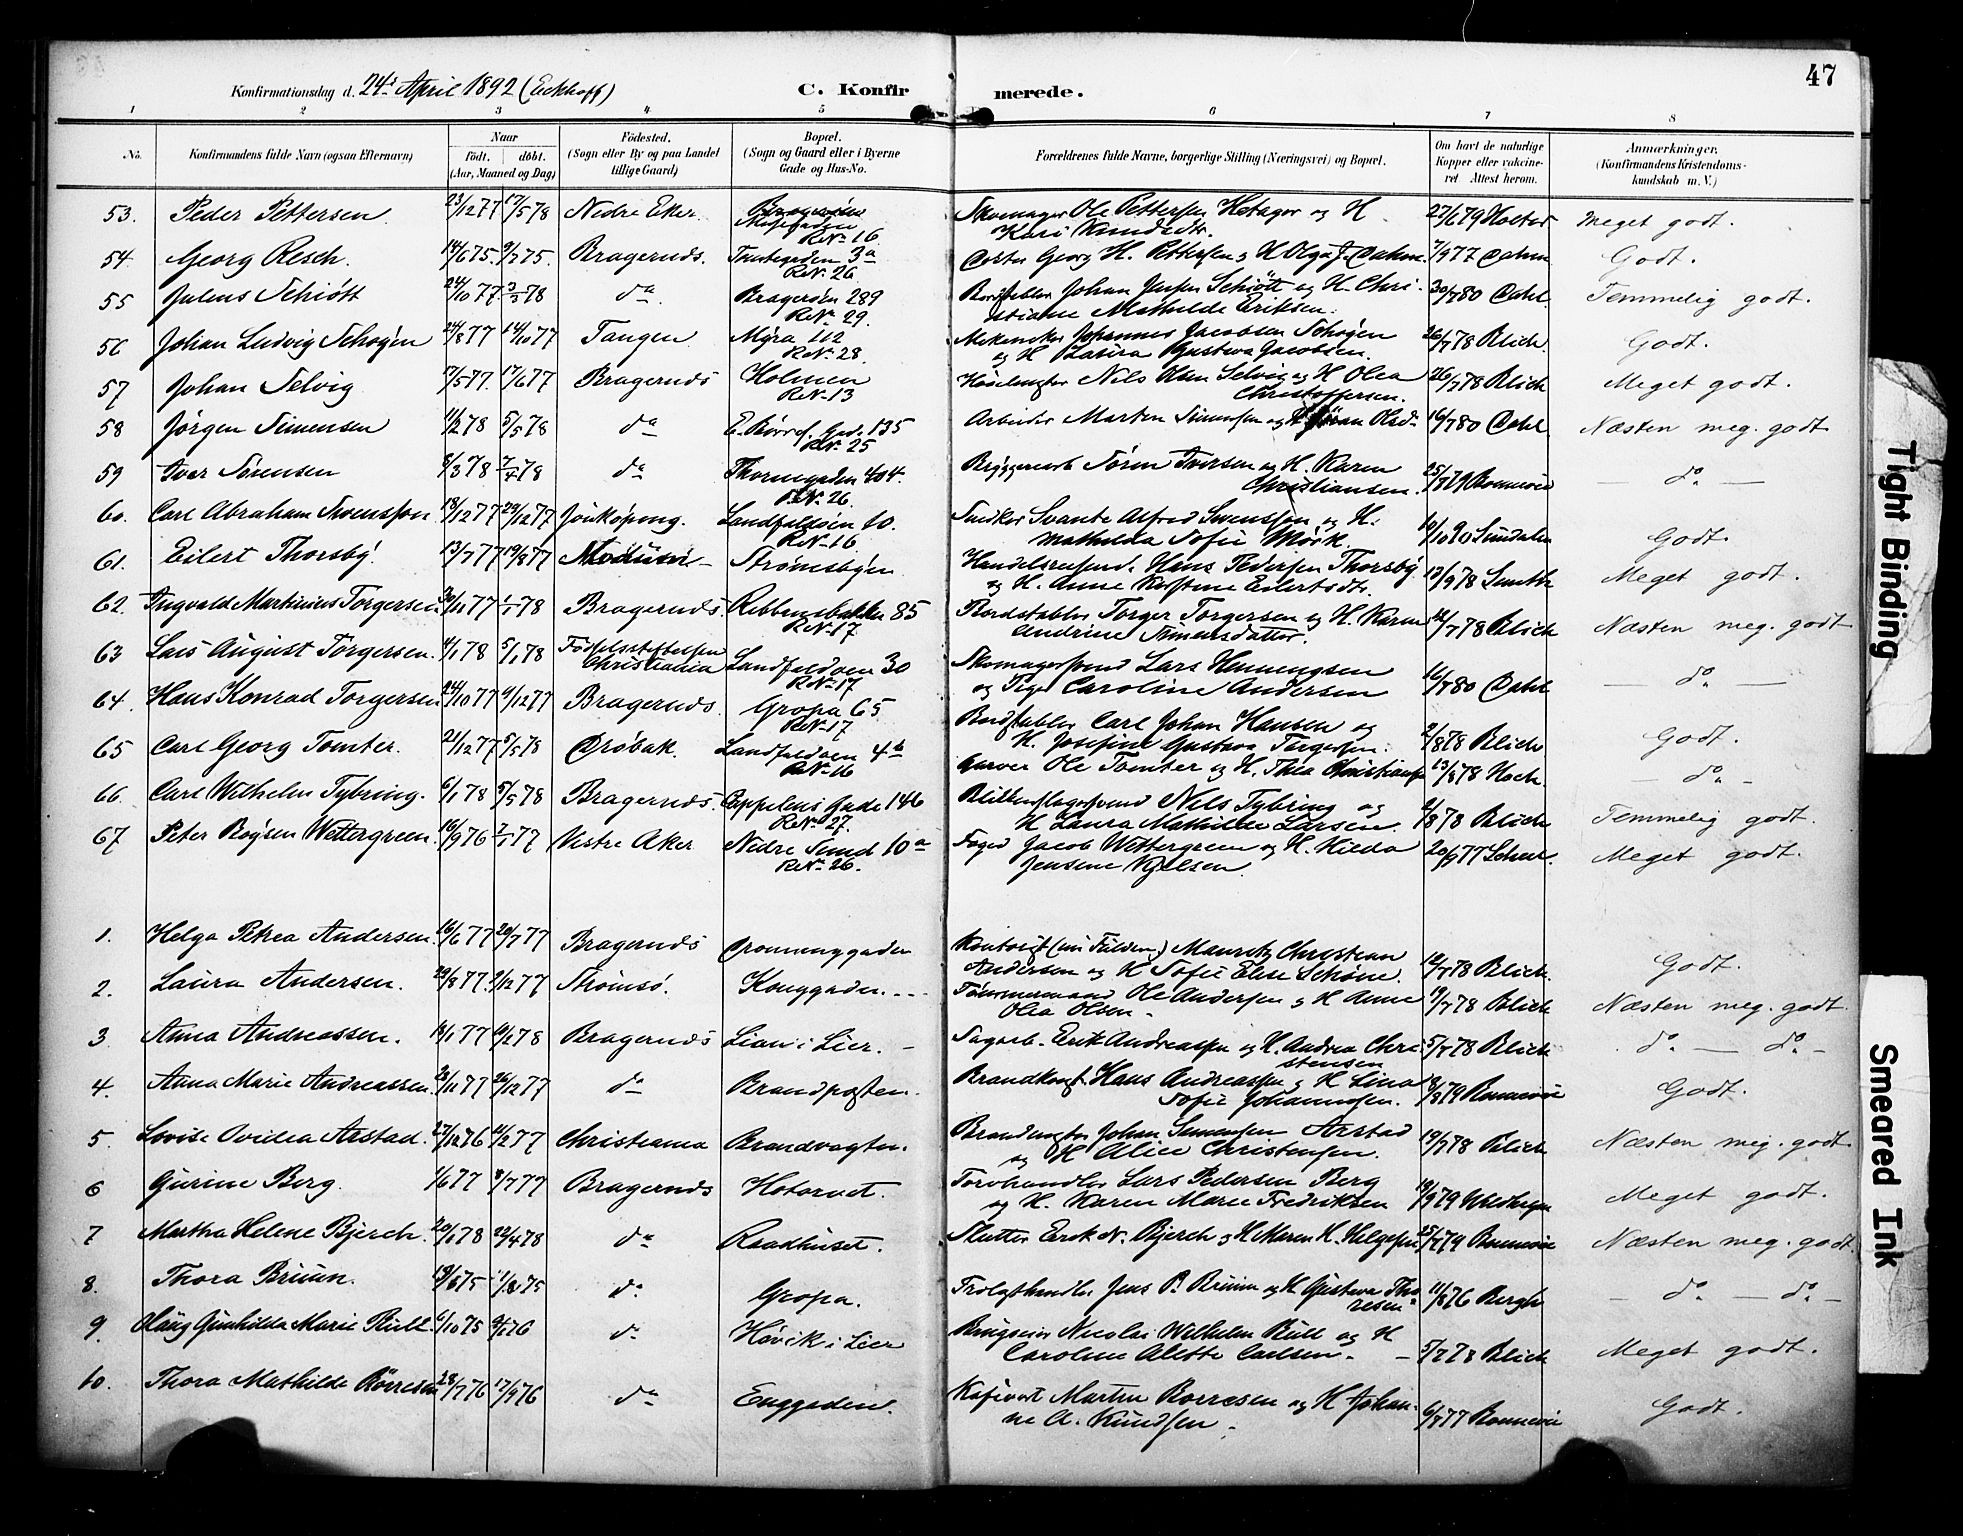 47
Konfirmationsdag d. 24de April 1892 (Eckhoff) C. Konfirmerede.
1 2 3 4 5 6 7 8
No. Konfirmandens fulde Navn (ogsaa Efternavn) Naar födt. döbt. (Aar, Maaned og Dag) Födested. (Sogn eller By og paa Landet tillige Gaard) Bopæl. (Sogn og Gaard eller i Byerne Gade og Hus-No. Forældrenes fulde Navne, borgerlige Stilling (Næringsvei) og Bopæl. Om havt de naturlige Kopper eller vakcineret Attest herom. Anmærkninger. (Konfirmandens Kristendomskundskab m. V.)
53. Peder Pettersen 23/12 77 17/5 78 Nedre Eker. R.No 16 Skomager Ole Pettersen Hetager og H. Kari Knudsdtr. 27/6 79 Meget godt.
54. Georg Resch. 14/6 75. 9/7 75. Bragernæs. Tomtegaden 3a R.No 26 Georg H. Pettersen og H. Olga J. Dahm. 7/9 77 Dahm Godt.
55 Julius Schiött 24/10 77 3/3 78 da Bragerøen 289 R.No 29. Bordstabler Johan Jensen Schiött og H. Christiane Mathilde Eriksen. 30/7 80 Dahl. Temmelig godt.
56 Johan Ludvig Schogen 24/8 77 14/10 77 Tangen Myra 112 R.No 28. Mekaniker Johannes Jacobsen Schogen og H. Gustava Jacobsen. 26/7 78 Blich. Godt.
57 Johan Selvig 7/5 77. 17/6 77 Bragernæs Holmen R.No 13 Nils Olsen Selvig og H Olea Christoffersen. 26/7 78 Blich Meget godt.
58 Jørgen Simensen 11/2 78 5/5 78 da E. Børres. Gade 135 R.No 25 Arbeider Marten Simensen og H. Gøran Olsdr 16/7 80 Dahl. Næsten meg. godt
59 Iver Sørensen 8/3 78 da Thornegaden 404. R.No 26. Bryggerarb. Søren Iversen og H. Karen Christiansen. 25/7 79 Bonnevie — do —
60. Carl Abraham Svensson. 18/12 77 29/12 77 Jönköping. Landfaldøen 10. R.No 16 Snedker Svante Alfred Svensson og H. Mathilda Sofie Mörk. 10/10 90 Sundalen Godt.
61. Eilert Thorsby. 13/7 77 19/8 77 Modum Strømsbyen Handelsreisend. Hans Pedersen Thorsby og H. Anne Kirstine Eilertsdtr. 13/9 78 Smith Meget godt.
62. Ingvald Martinius Torgersen 30/11 77 1/1 78 Bragernæs. Ribbensbakken 85 R.No 17 Bordstabler Torger Torgersen og H. Karen Andrine Simensdatter. 12/7 78 Blich Næsten meg. godt
63 Lars August Torgersen. 4/1 78 5/1 78 Födselsstiftelsen Christiania Landfaldøen 30 R.No 17 Skomagersvend Lars Henningsen og Pige Caroline Andersen 16/7 80 Dahl — do —
64. Hans Konrad Torgersen 24/10 77 9/12 77 Bragernæs. Gropa 65 R.No 17 Bordstabler Carl Johan Hansen og H. Josefine Gustava Torgersen. 2/8 78 Blich Godt.
65 Carl Georg Tomter. 21/12 77 5/5 78 Drøbak. Landfaldøen 4b R.No 16 Garver Ole Tomter og H. Thea Christiansen 13/8 78 Hoch. — do —
66. Carl Wilhelm Tybring. 6/1 78 5/5 78 Bragernæs. Cappelens Gade 146 R.No 27. Blikkenslagersvend Nils Tybring og H Laura Mathilde Larsen. 2/8 78 Blich Temmelig godt.
67. Peter Boysen Wettergreen. 16/9 76 7/1 77 Vestre Aker Nedre Sund 10a R.No 26. Foged Jacob Wettergreen og H. Hilda Jensine Kjelsen. 20/9 77 Meget godt.
1. Helga Petrea Andersen. 16/6 77 20/7 77 Bragernæs Dronninggaden Kontorist (nu Fulden) Mauritz Christian Andersen og H Sofie Elise Schöne. 12/7 78 Blich. Godt.
2. Laura Andersen. 29/8 77. 9/12 77 Strömsö. Konggaden Tömmermand Ole Andersen og H Anne Olea Olsen 19/7 78 Blich Næsten meg. godt.
3 Anna Andreassen. 18/1 77 10/2 78 Bragernæs Lian i Lier. Sagarb. Erik Andreassen og H. Andrea Christensen 5/7 78 Blich do — do
4. Anna Marie Andreassen. 23/11 77 26/12 77 da Brandposten. Brandkonst. Hans Andreassen og H Lina Sofie Johannesen. 8/8 79 Bonnevie Godt.
5. Lovise Ovidia Arstad. 27/12 76 11/2 77 Christiania Brandvagten. Brandvagter Johan Simensen Arstad og H Alice Christensen. 19/7 78 Blich Næsten meg. godt
6 Gurine Berg. 1/6 77 8/7 77 Bragernæs Høtorvet. Torvhandler Lars Pedersen Berg og H. Karen Marie Fredriksen 19/9 79 Meget godt.
7 Martha Helene Bjerch. 20/1 78 22/4 78 da Raadhuset. Slutter Erik N. Bjerch og H Maren H. Helgesen 25/7 79 Bonnevie Næsten meg. godt.
8. Thora Bruun. 19/6 75 1/8 75 da Gropa. Jens P. Bruun og H Gustava Thoresen 11/8 76 Bergh — do — do —
9. Gunhilda Marie Bull. 6/10 75 2/1 76 da Høvik i Lier Brugseier Nicolai Wilhelm Bull og H Caroline Alette Carlsen. 5/7 78 Blich Meget godt.
10. Thora Mathilde Børresen 28/7 76 17/9 76 da Enggaden. Martin Børresen og H Johanne A. Knudsen 6/7 77 Bonnevie Godt.
Tight Binding
Smeared Ink